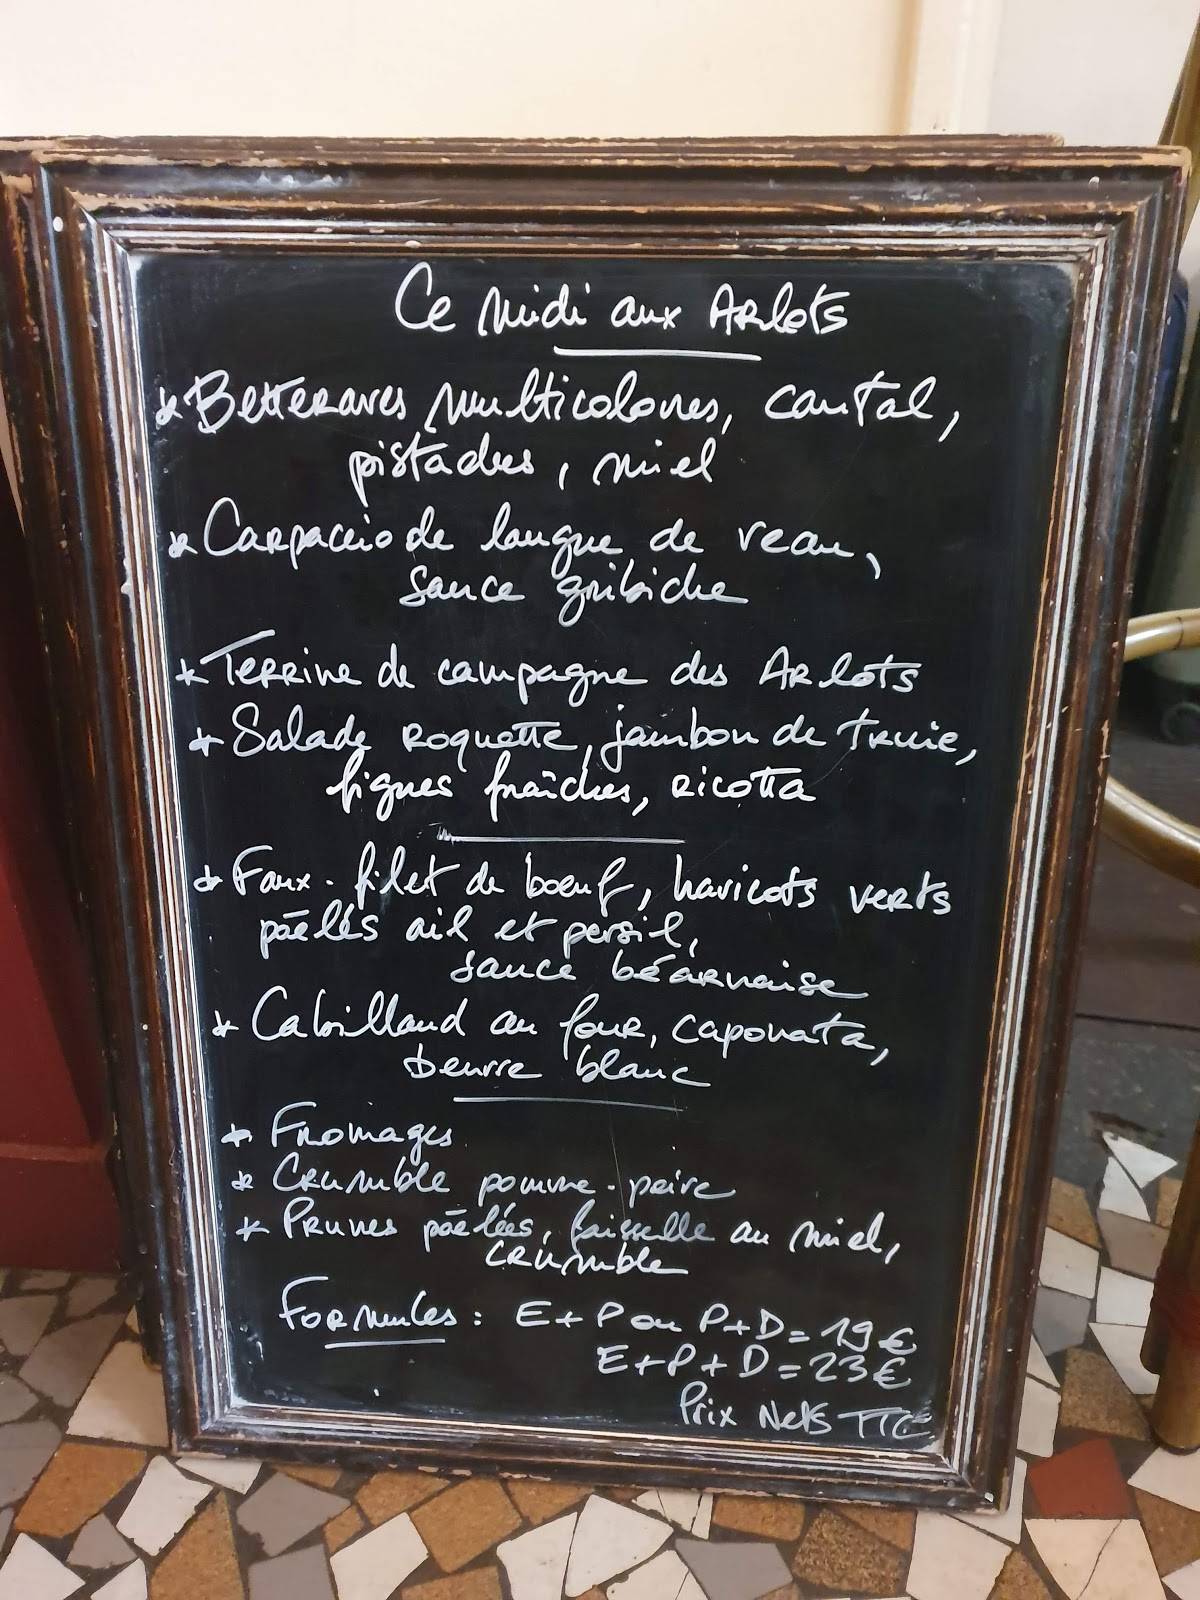 Ce midi aux Arlots
* Betteraves multicolores, cantal,
pistaches, miel
* Carpaccio de langue de veau,
sauce gribiche
* Terrine de campagne des Arlots
* Salade roquette, jambon de truie,
figues fraîches, ricotta
* Faux-filet de boeuf, haricots verts
poêlés ail et persil,
sauce béarnaise
* Cabillaud au four, caponata,
beurre blanc
* Fromages
* Crumble pomme-poire
* Prunes poêlées, faisselle au miel,
crumble
Formules : E+P ou P+D = 19€
E+P+D = 23€
Prix Nets TTC